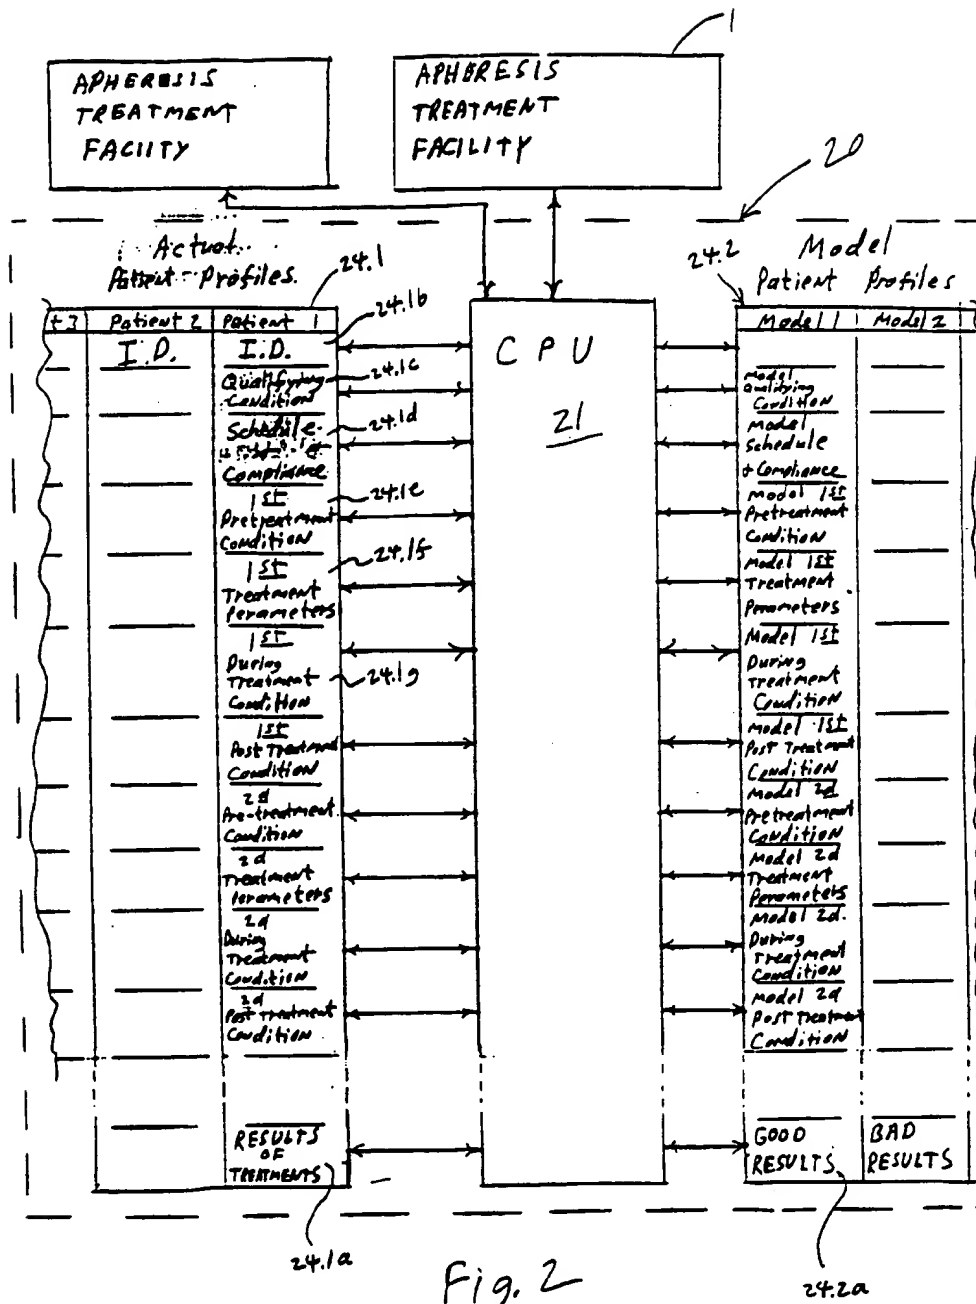 1
APHERESIS
TREATMENT
FACIITY
APHERESIS
TREATMENT
FACILITY
20
Actual
Patient Profiles.
24.1
24.2
Model
Patient Profiles
24.1b
t 3
Patient 2
Patient 1
I.D.
I.D.
Qualifying
Condition
24.1c
Schedule
24.1d
Compliance
1st
24.1e
Pretreatment
Condition
1st
24.1f
Treatment
Perameters
1st
During
Treatment
24.1g
Condition
1st
Post Treatment
Condition
2d
Pre-treatment
Condition
2d
Treatment
Perameters
2d
During
Treatment
Condition
2d
Post Treatment
Condition
RESULTS
OF
TREATMENTS
24.1a
CPU
21
Model 1
Model 2
Model
Qualifying
Condition
Model
Schedule
+ Compliance
Model 1st
Pretreatment
Condition
Model 1st
Treatment
Perameters
Model 1st
During
Treatment
Condition
Model 1st
Post Treatment
Condition
Model 2d
Pretreatment
Condition
Model 2d
Treatment
Perameters
Model 2d.
During
Treatment
Condition
Model 2d
Post Treatment
Condition
GOOD
RESULTS
BAD
RESULTS
24.2a
Fig. 2